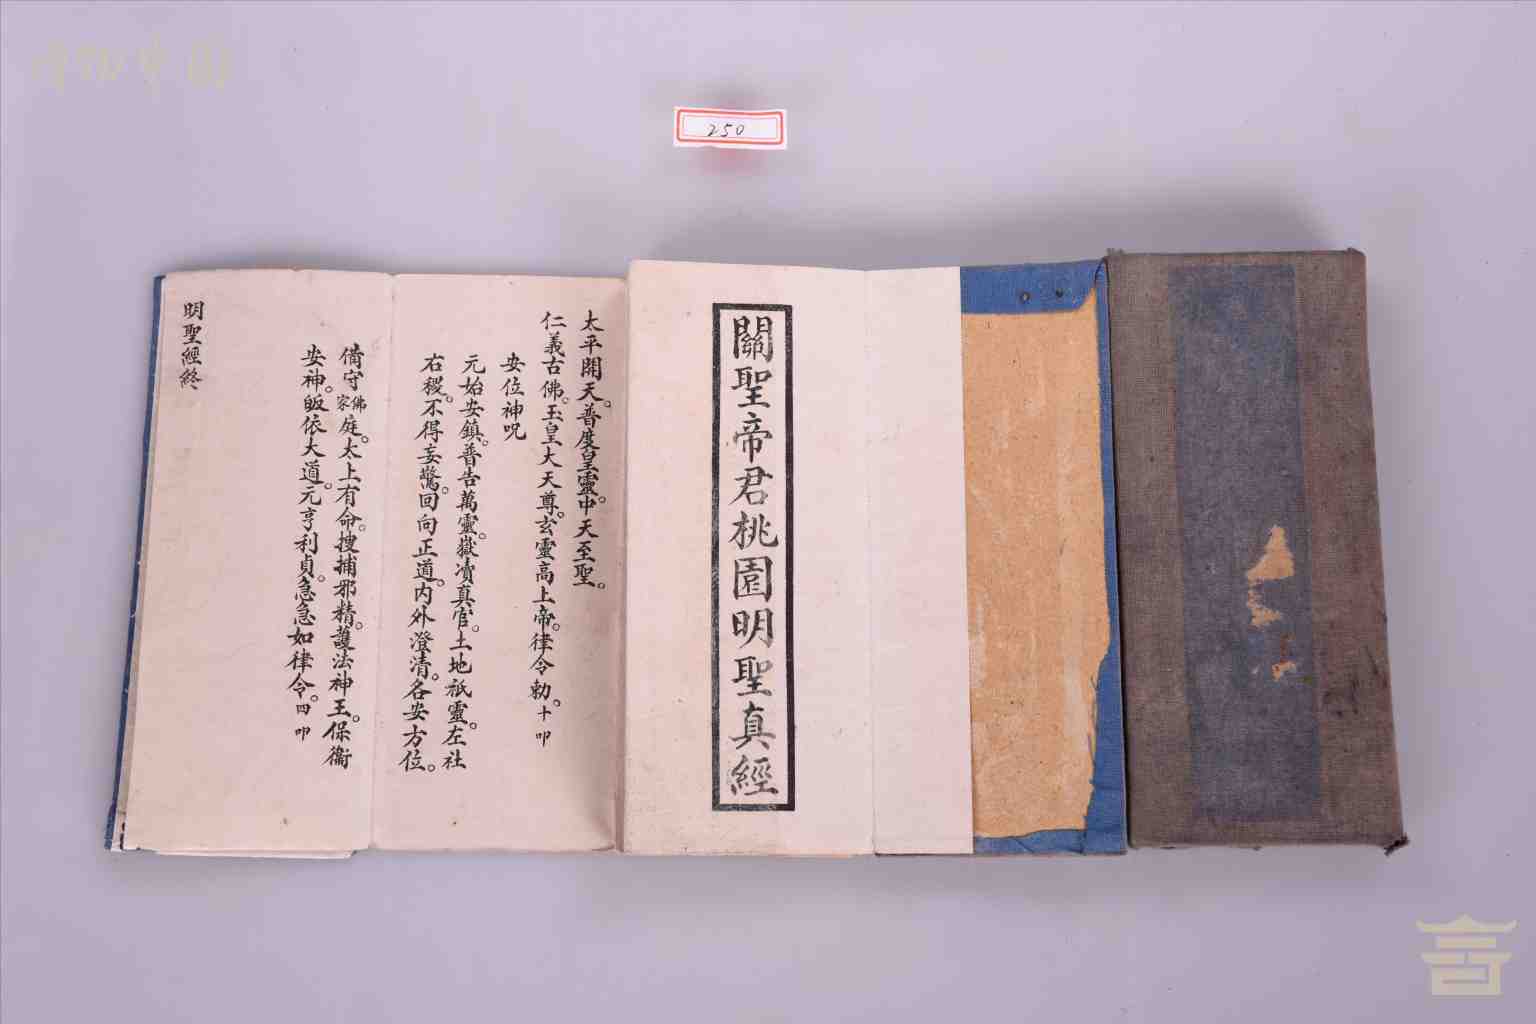 250
關聖帝君桃園明聖真經
太平開天。普度皇靈。中天至聖。
仁義古佛。玉皇大天尊。玄靈高上帝。律令勅。十叩
安位神咒
元始安鎮。普告萬靈。嶽凟真官。土地祇靈。左社
右稷。不得妄驚。回向正道。内外澄清。各安方位。
備守佛家庭。太上有命。搜捕邪精。護法神王。保衞
安神。皈依大道。元亨利貞。急急如律令。四叩
明聖經終